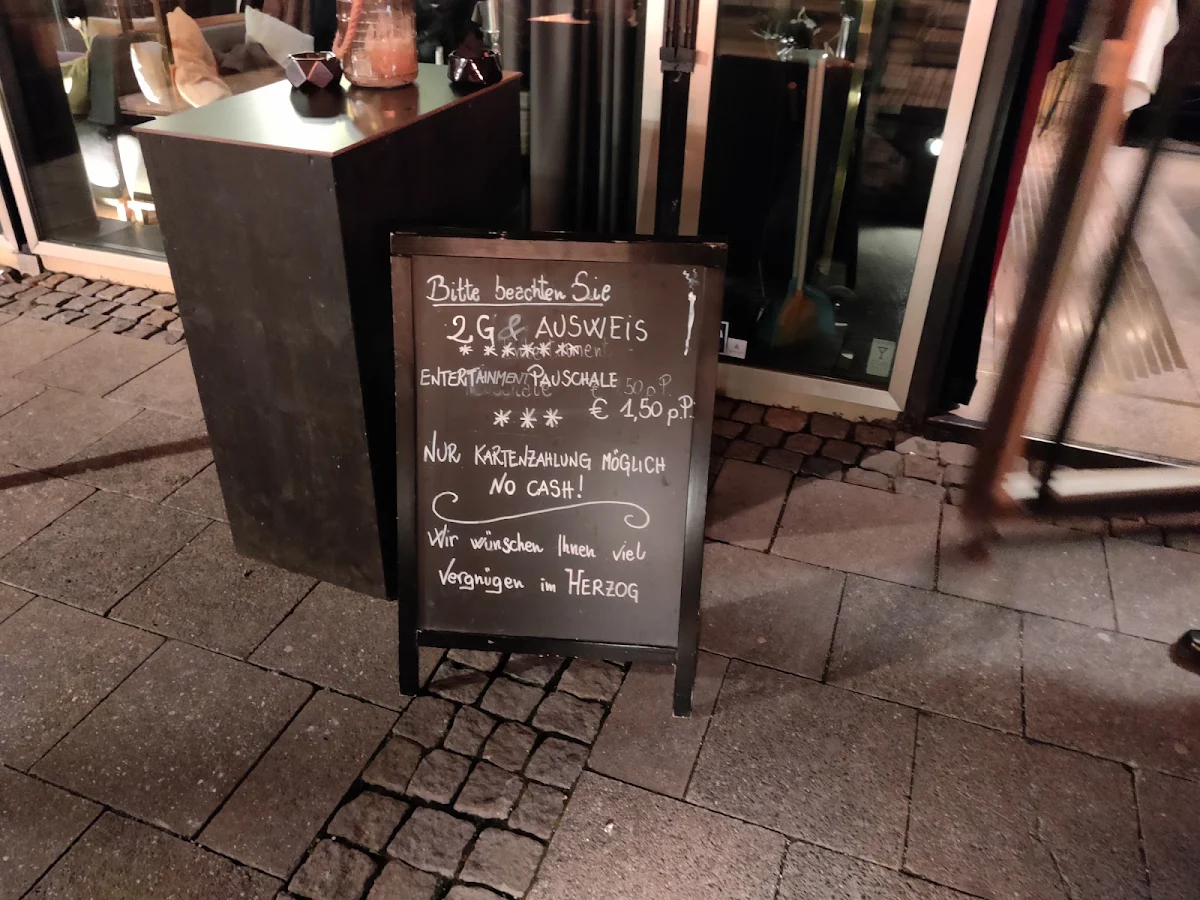 Bitte beachten Sie
2G & AUSWEIS !
* * * * * *
ENTERTAINMENT PAUSCHALE
€ 1,50 p.P.
* * *
NUR KARTENZAHLUNG MÖGLICH
NO CASH!
Wir wünschen Ihnen viel
Vergnügen im HERZOG